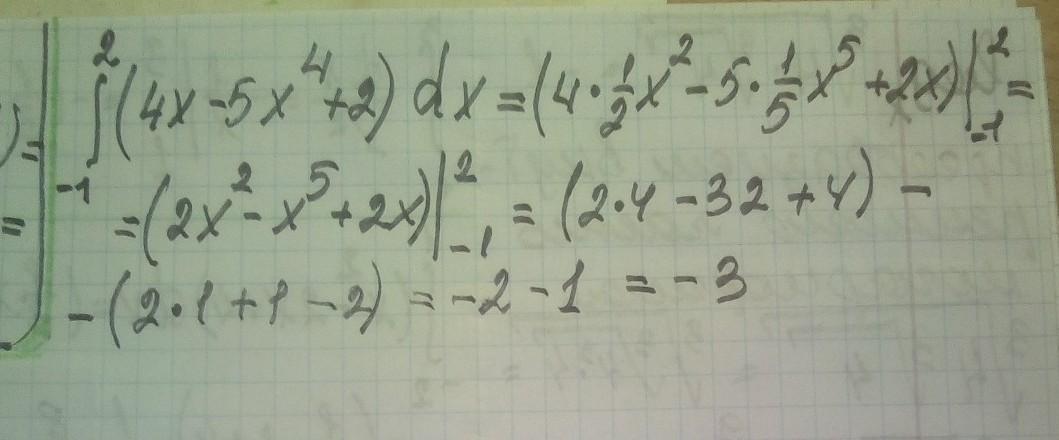 ∫₋₁² (4x - 5x⁴ + 2) dx = (4·1/2x² - 5·1/5x⁵ + 2x)|₋₁² =
= (2x² - x⁵ + 2x)|₋₁² = (2·4 - 32 + 4) -
- (2·1 + 1 - 2) = -2 - 1 = -3